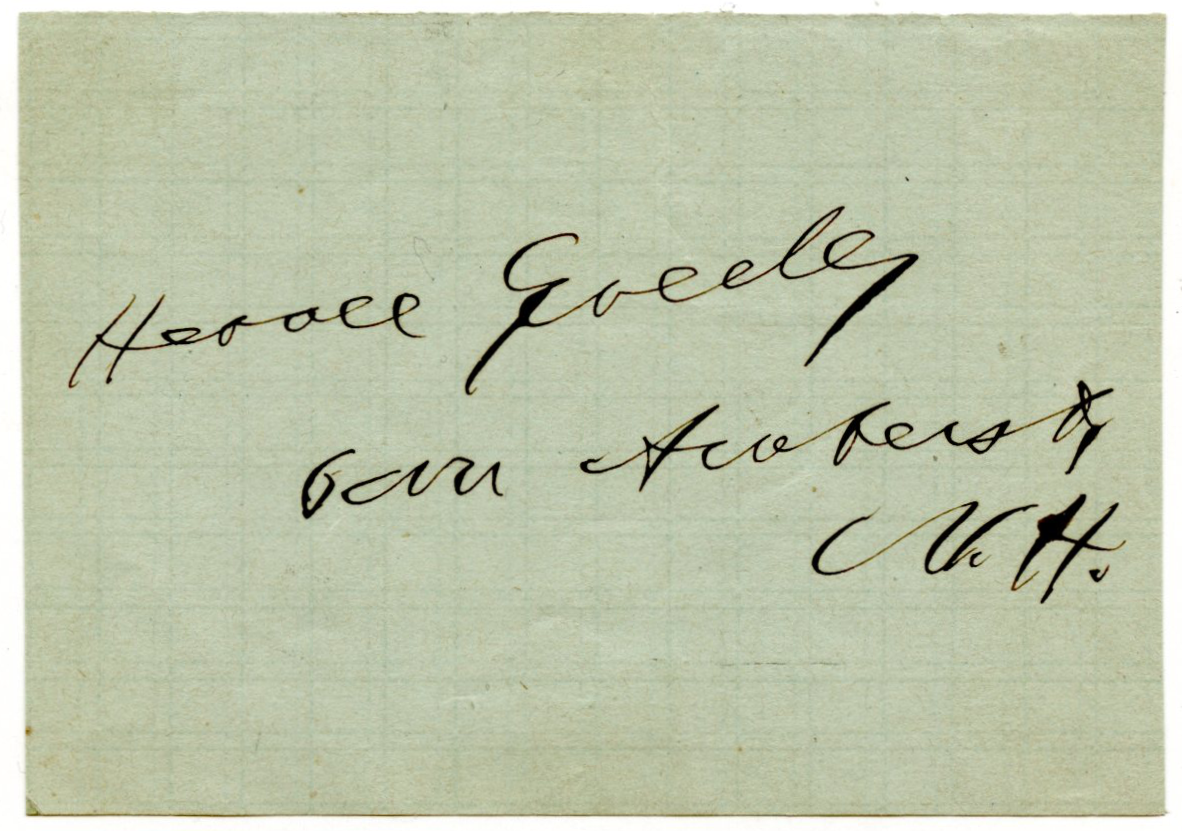 Horace Greeley
born Amherst,
N.H.